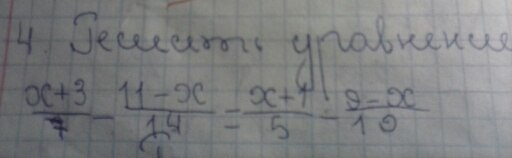 4. Решить уравнение
x+3/7 - 11-x/14 = x+1/5 - 9-x/10